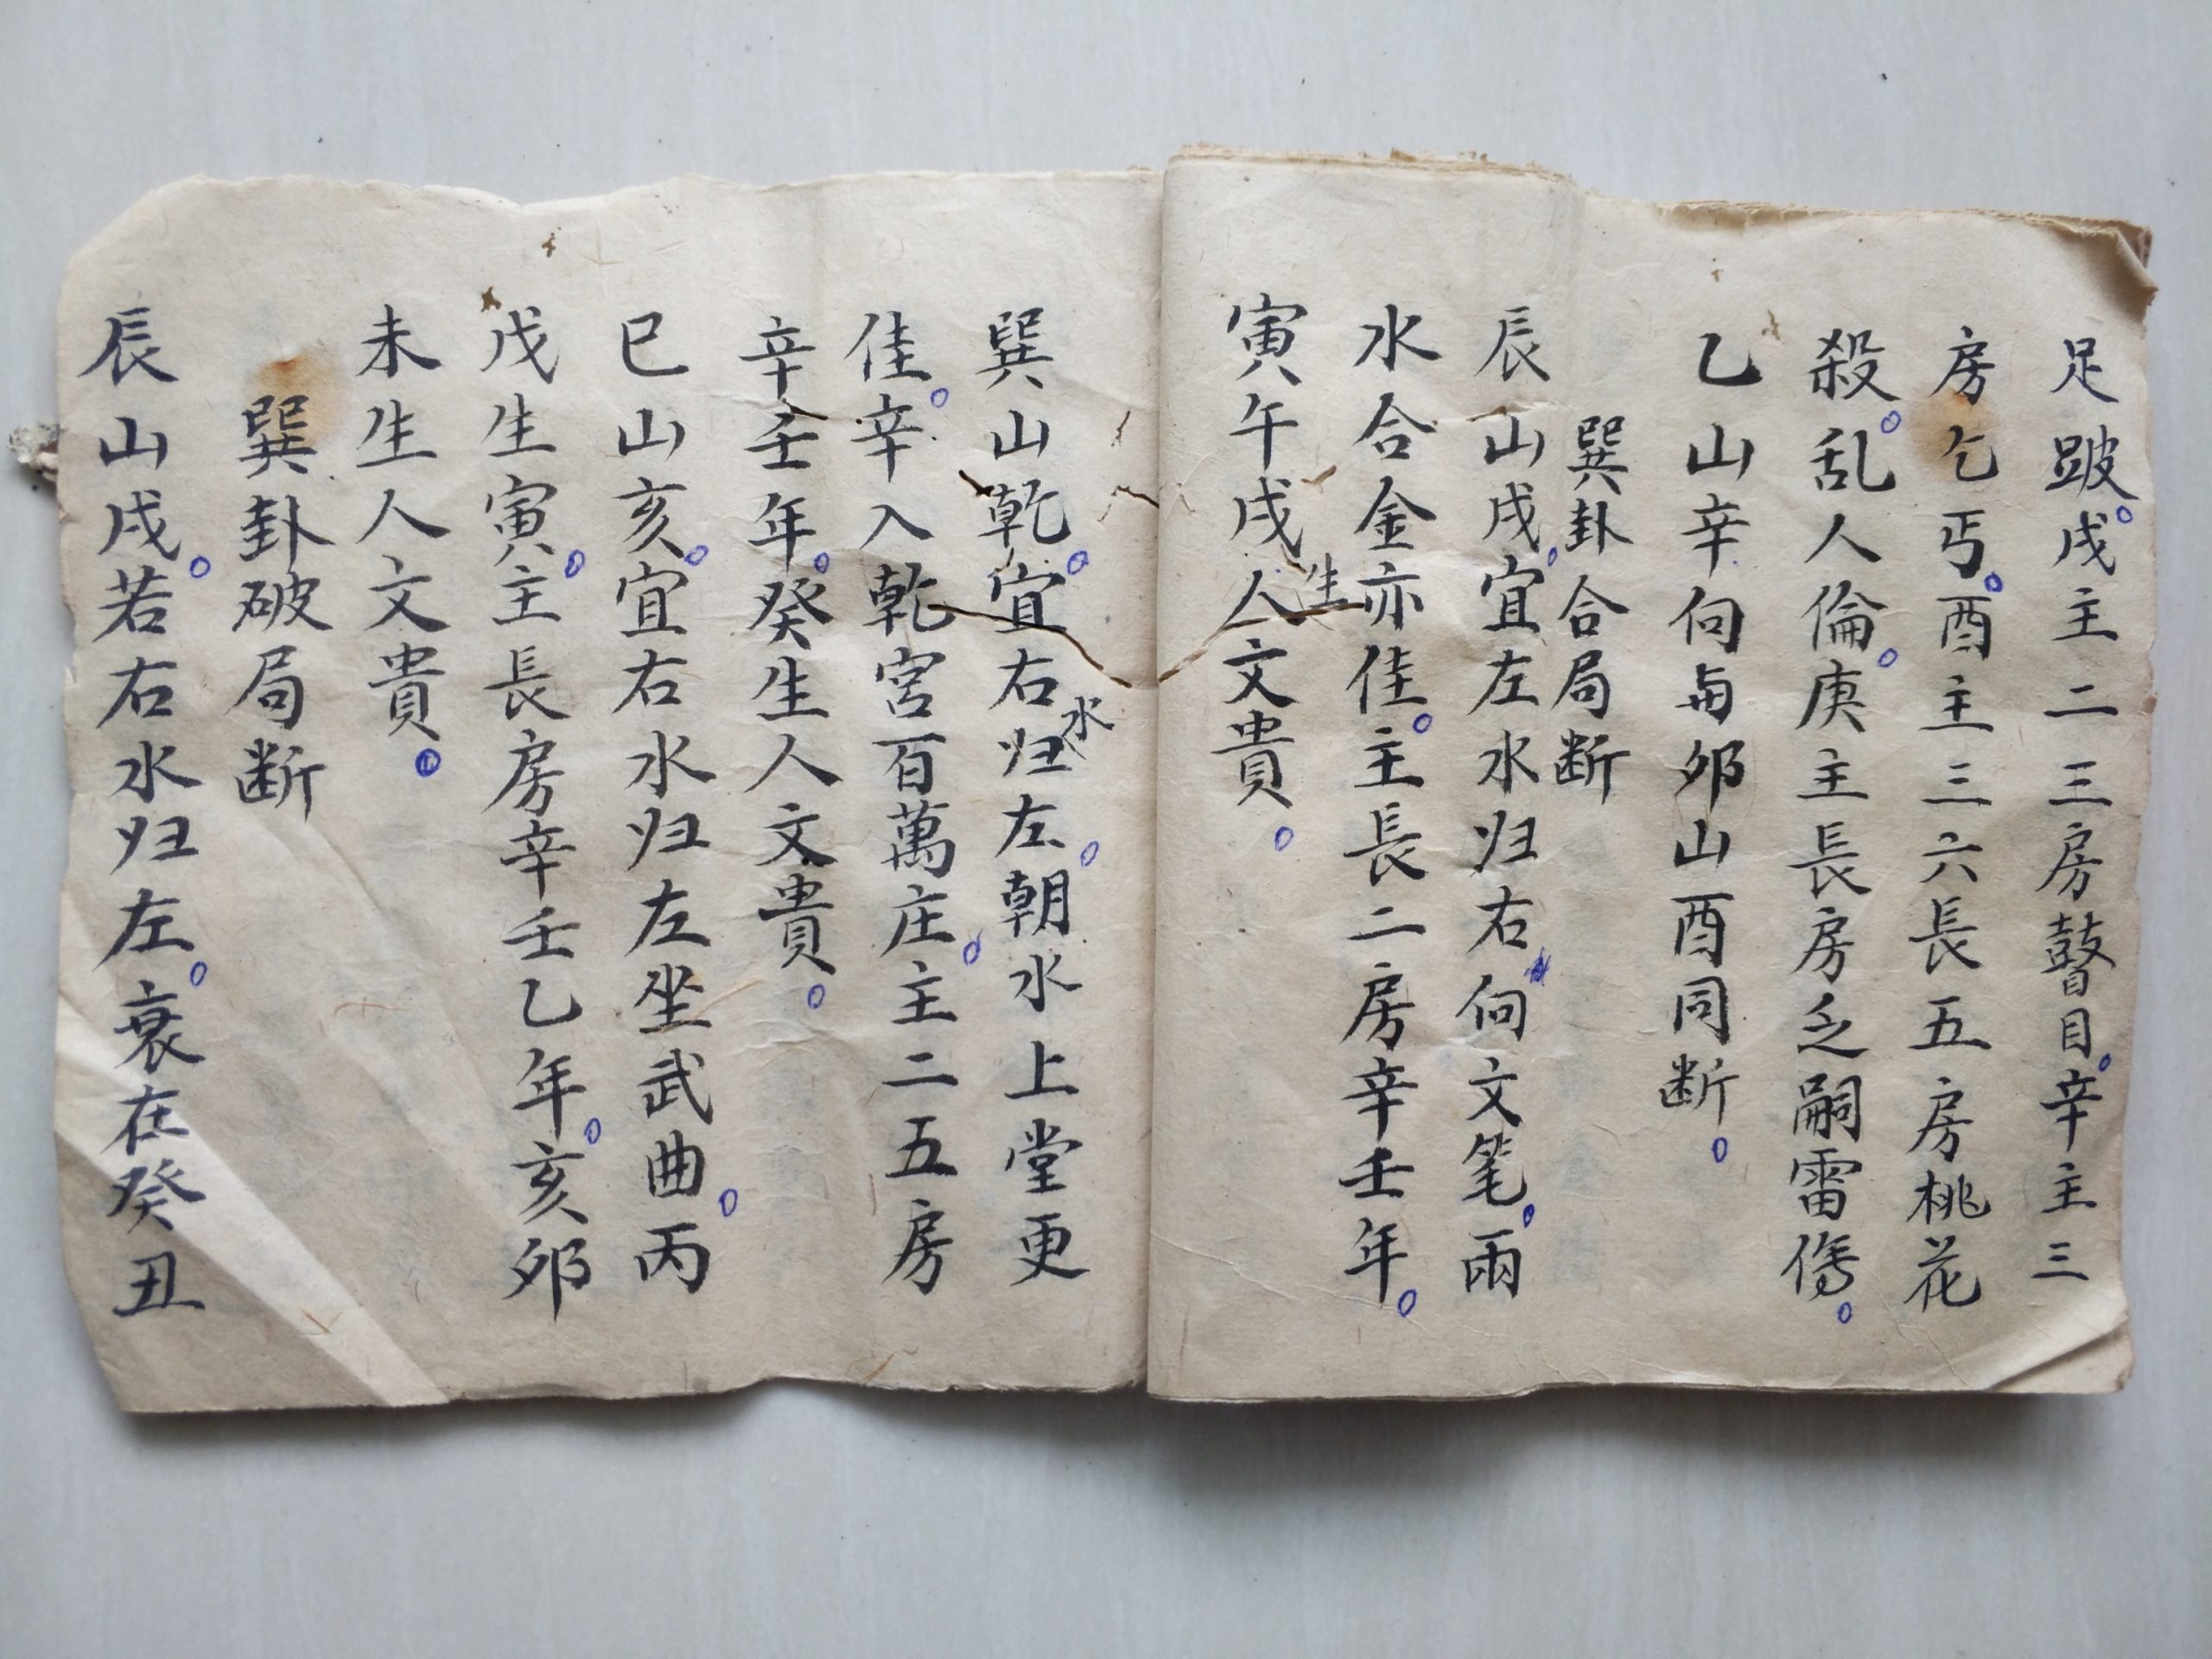 足跛。戌主二三房瞽目。辛主三
房乞丐。酉主三六長五房桃花
殺。乱人倫。庚主長房乏嗣雷傷。
乙山辛向与卯山酉同断。
巽卦合局断
辰山戌。宜左水归右向文笔。兩
水合金亦佳。主長二房辛壬年。
寅午戌生人文貴。
巽山乾。宜右水归左。朝水上堂更
佳。辛入乾宮百萬庄。主二五房
辛壬年。癸生人文貴。
巳山亥。宜右水归左坐武曲。丙
戊生寅。主長房辛壬乙年。亥卯
未生人文貴。
巽卦破局断
辰山戌。若右水归左。衰在癸丑